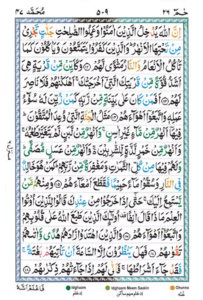 محمد ٤٧
٥٠٩
حٰمٓ ٢٦
اِنَّ اللّٰهَ يُدْخِلُ الَّذِيْنَ اٰمَنُوْا وَعَمِلُوا الصّٰلِحٰتِ جَنّٰتٍ تَجْرِيْ
مِنْ تَحْتِهَا الْاَنْهٰرُ وَالَّذِيْنَ كَفَرُوْا يَتَمَتَّعُوْنَ وَيَاْكُلُوْنَ كَمَا
تَاْكُلُ الْاَنْعَامُ وَالنَّارُ مَثْوًى لَّهُمْ وَكَاَيِّنْ مِّنْ قَرْيَةٍ هِيَ
اَشَدُّ قُوَّةً مِّنْ قَرْيَتِكَ الَّتِيْٓ اَخْرَجَتْكَ اَهْلَكْنٰهُمْ فَلَا نَاصِرَ
لَهُمْ اَفَمَنْ كَانَ عَلٰى بَيِّنَةٍ مِّنْ رَّبِّهٖ كَمَنْ زُيِّنَ لَهٗ سُوْٓءُ
عَمَلِهٖ وَاتَّبَعُوْٓا اَهْوَآءَهُمْ مَثَلُ الْجَنَّةِ الَّتِيْ وُعِدَ الْمُتَّقُوْنَ
فِيْهَآ اَنْهٰرٌ مِّنْ مَّآءٍ غَيْرِ اٰسِنٍ وَاَنْهٰرٌ مِّنْ لَّبَنٍ لَّمْ يَتَغَيَّرْ طَعْمُهٗ
وَاَنْهٰرٌ مِّنْ خَمْرٍ لَّذَّةٍ لِّلشّٰرِبِيْنَ وَاَنْهٰرٌ مِّنْ عَسَلٍ مُّصَفًّى
وَلَهُمْ فِيْهَا مِنْ كُلِّ الثَّمَرٰتِ وَمَغْفِرَةٌ مِّنْ رَّبِّهِمْ كَمَنْ هُوَ خَالِدٌ
فِي النَّارِ وَسُقُوْا مَآءً حَمِيْمًا فَقَطَّعَ اَمْعَآءَهُمْ وَمِنْهُمْ مَّنْ
يَّسْتَمِعُ اِلَيْكَ حَتّٰٓى اِذَا خَرَجُوْا مِنْ عِنْدِكَ قَالُوْا لِلَّذِيْنَ
اُوْتُوا الْعِلْمَ مَاذَا قَالَ اٰنِفًا اُولٰٓئِكَ الَّذِيْنَ طَبَعَ اللّٰهُ
عَلٰى قُلُوْبِهِمْ وَاتَّبَعُوْٓا اَهْوَآءَهُمْ وَالَّذِيْنَ اهْتَدَوْا زَادَهُمْ هُدًى وَّاٰتٰىهُمْ
تَقْوٰىهُمْ فَهَلْ يَنْظُرُوْنَ اِلَّا السَّاعَةَ اَنْ تَاْتِيَهُمْ بَغْتَةً فَقَدْ
جَآءَ اَشْرَاطُهَا فَاَنّٰى لَهُمْ اِذَا جَآءَتْهُمْ ذِكْرٰىهُمْ